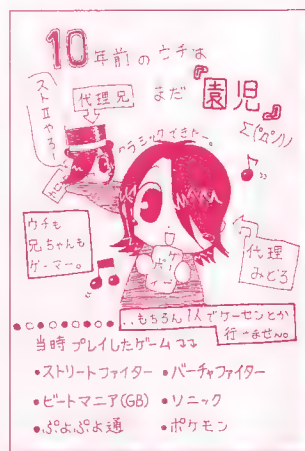 10年前のウチは
まだ『園児』
Σ(°Д°ﾉ)ﾉ
ストⅡやろー
代理兄
クラシックできたー。
ウチも
兄ちゃんも
ゲーマー。
代理
みどろ
ゲーム
ボーイ
..もちろん1人でゲーセンとか
行ーません。
当時プレイしたゲーム
・ストリートファイター
・バーチャファイター
・ビートマニア(GB)
・ソニック
・ぷよぷよ通
・ポケモン